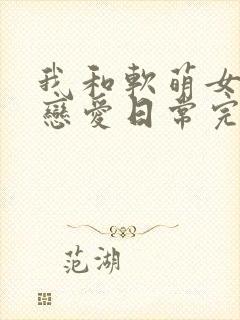 我和軟萌女
戀愛日常完
范湖